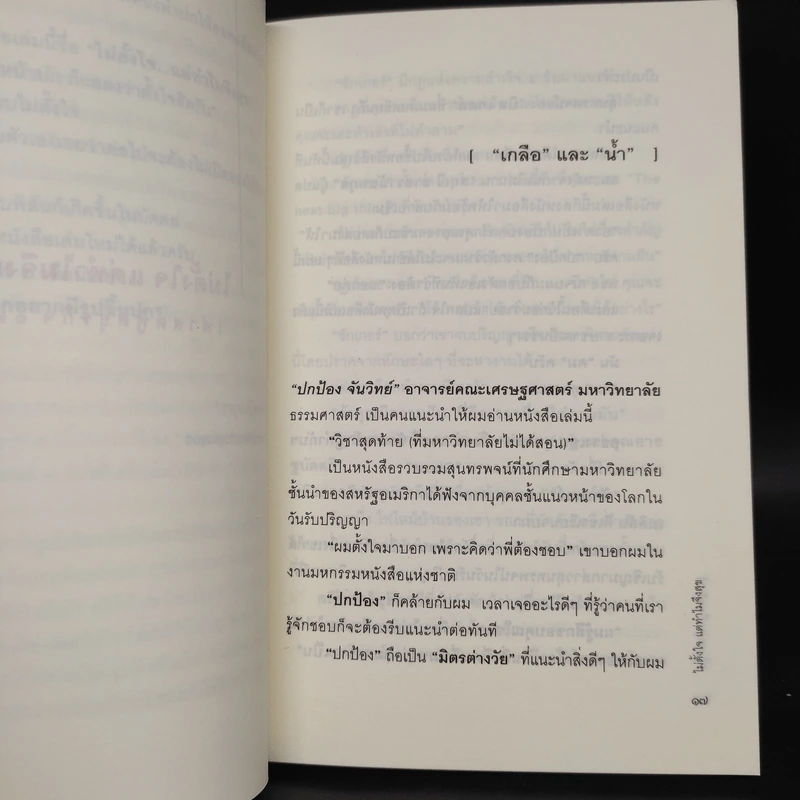 [ “เกลือ” และ “น้ำ” ]
“ปกป้อง จันวิทย์” อาจารย์คณะเศรษฐศาสตร์ มหาวิทยาลัย
ธรรมศาสตร์ เป็นคนแนะนำให้ผมอ่านหนังสือเล่มนี้
“วิชาสุดท้าย (ที่มหาวิทยาลัยไม่ได้สอน)”
เป็นหนังสือรวบรวมสุนทรพจน์ที่นักศึกษามหาวิทยาลัย
ชั้นนำของสหรัฐอเมริกาได้ฟังจากบุคคลชั้นแนวหน้าของโลกใน
วันรับปริญญา
“ผมตั้งใจมาบอก เพราะคิดว่าพี่ต้องชอบ” เขาบอกผมใน
งานมหกรรมหนังสือแห่งชาติ
“ปกป้อง” ก็คล้ายกับผม เวลาเจออะไรดีๆ ที่รู้ว่าคนที่เรา
รู้จักชอบก็จะต้องรีบแนะนำต่อทันที
“ปกป้อง” ถือเป็น “มิตรต่างวัย” ที่แนะนำสิ่งดีๆ ให้กับผม
ไม่ตั้งใจ แต่ทำไมจึงสุข
๑๗